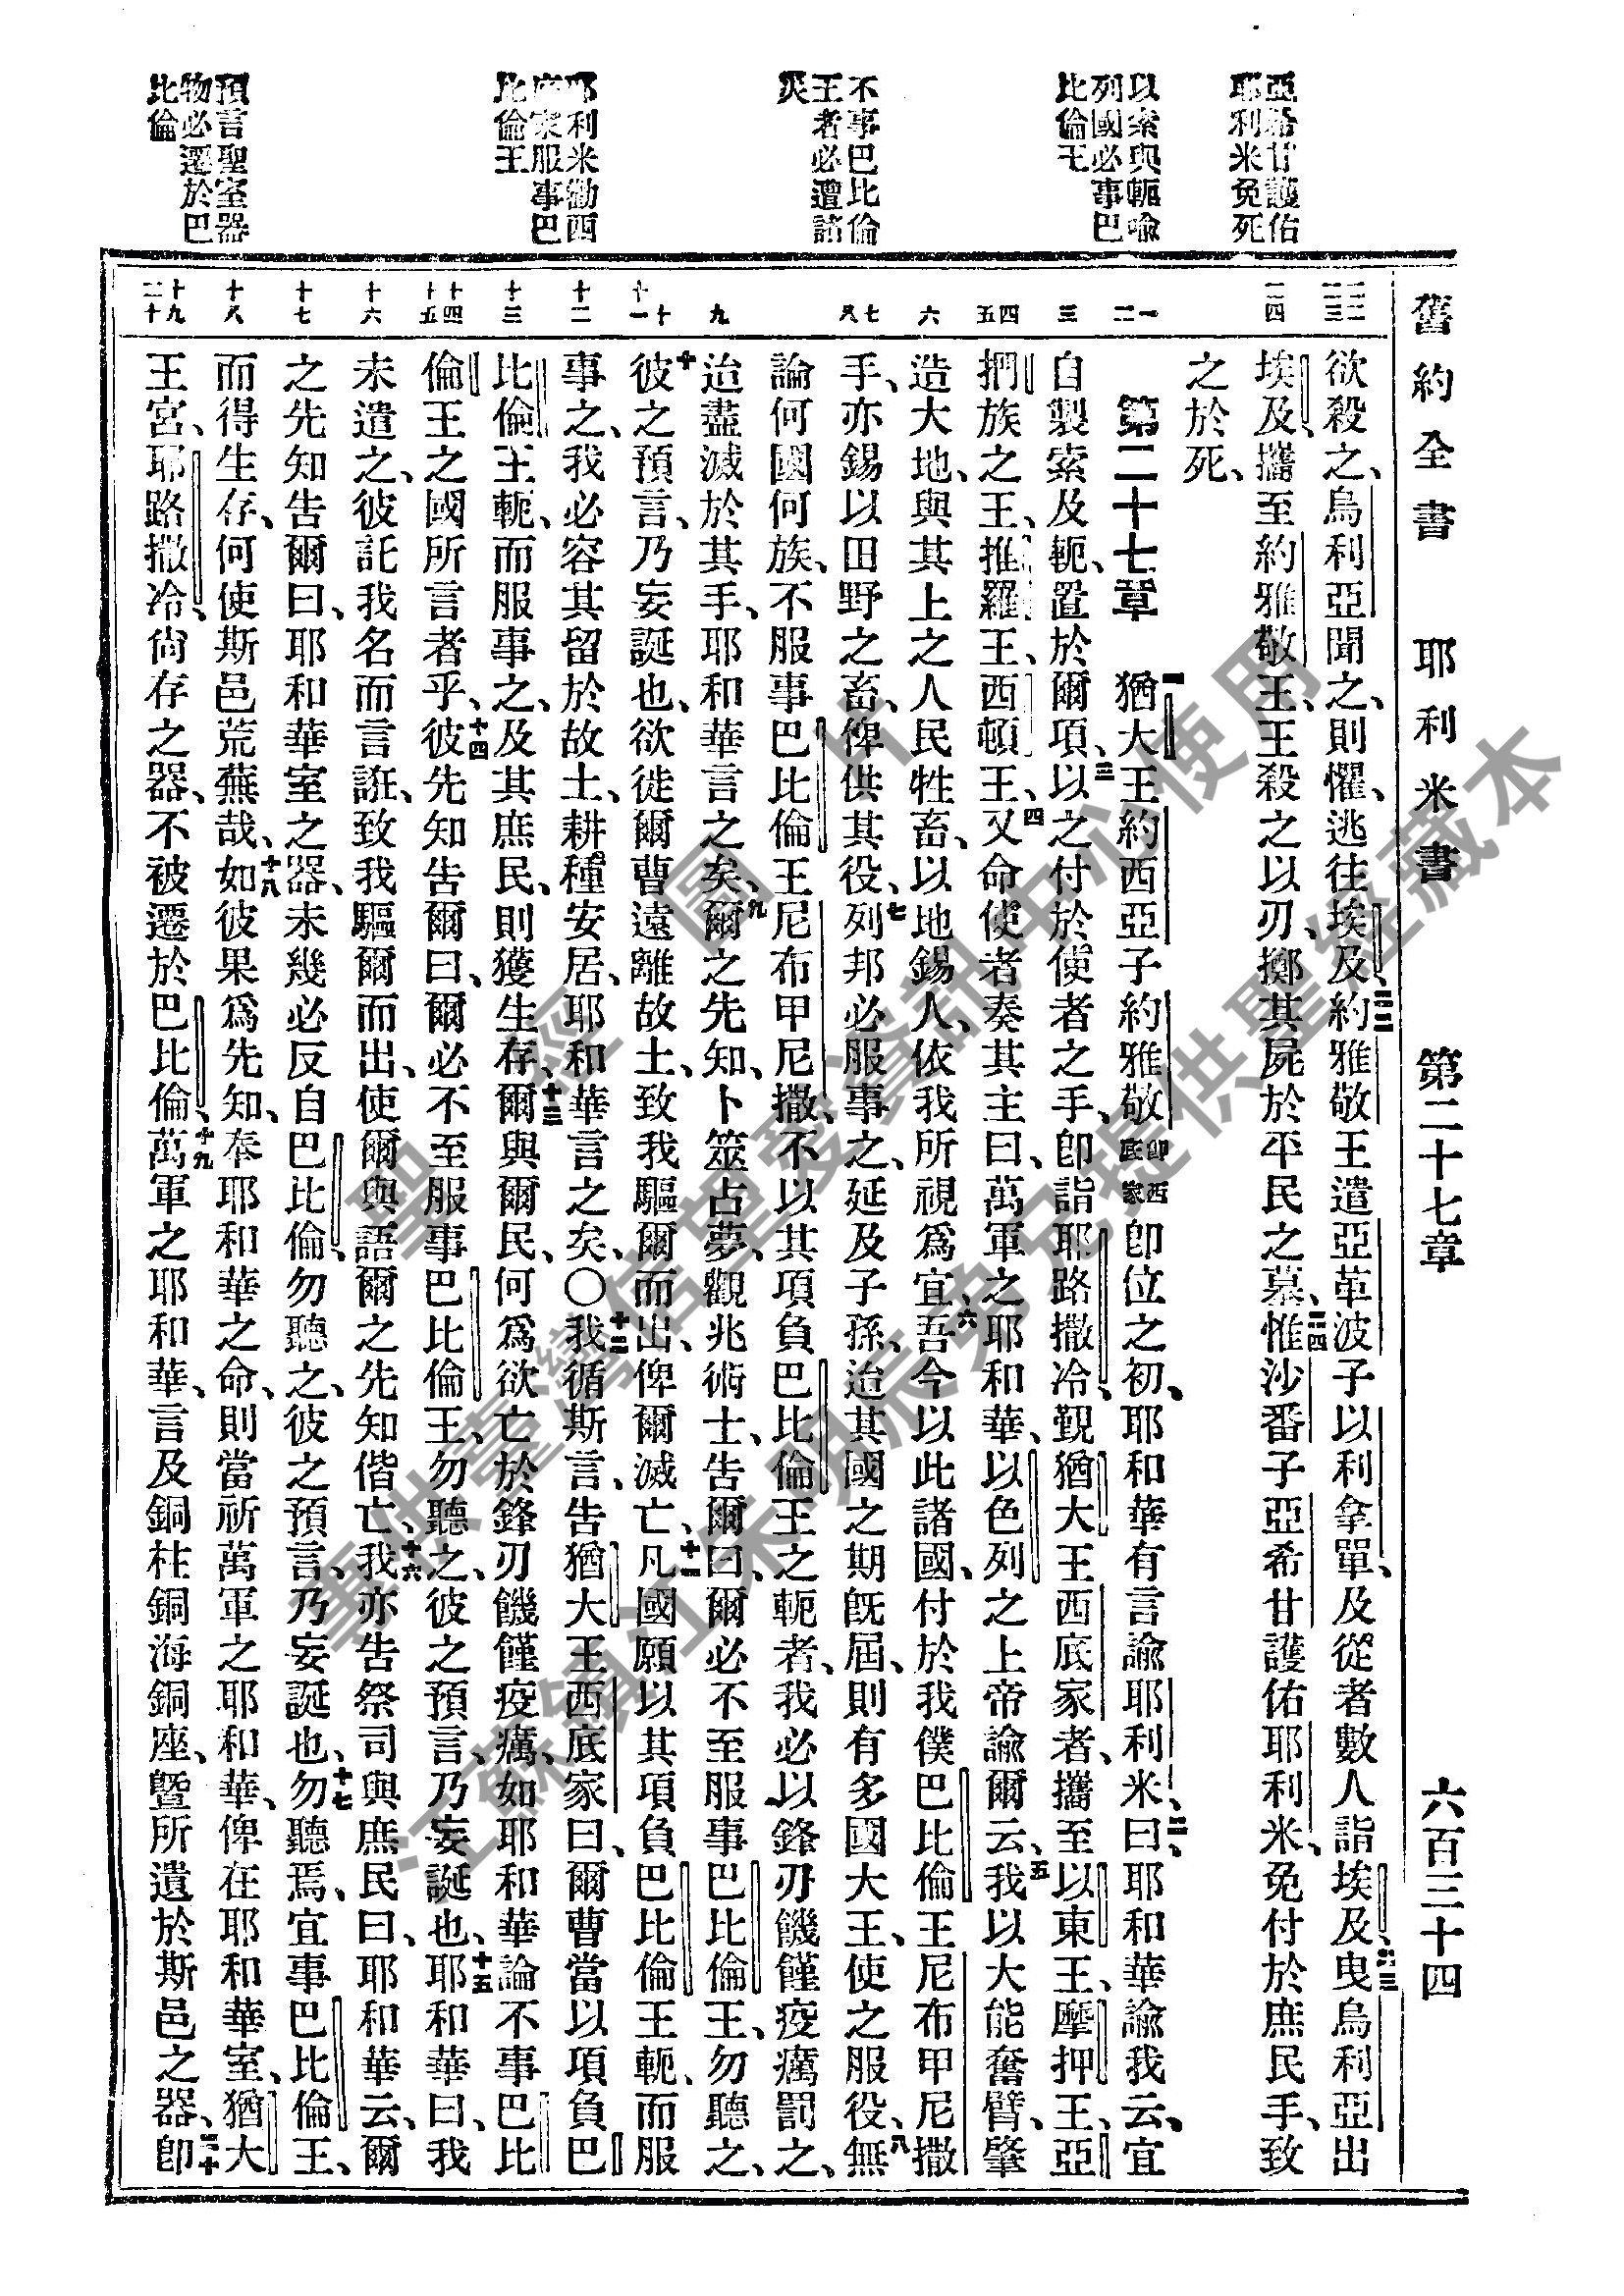 舊約全書　耶利米書　第二十七章　六百三十四
亞希甘護佑
耶利米免死
以索與軛喻
列國必事巴
比倫王
不事巴比倫
王者必遭諸
災
耶利米勸西
底家服事巴
比倫王
預言聖室器
物必遷於巴
比倫
欲殺之、烏利亞聞之、則懼、逃往埃及、二二約雅敬王遣亞革波子以利拿單、及從者數人詣埃及、二三曳烏利亞出
埃及、攜至約雅敬王、王殺之以刃、擲其屍於平民之墓、二四惟沙番子亞希甘護佑耶利米、免付於庶民手、致
之於死、
第二十七章　一猶大王約西亞子約雅敬即西底家卽位之初、耶和華有言諭耶利米曰、二耶和華諭我云、宜
自製索及軛、置於爾項、三以之付於使者之手、卽詣耶路撒冷、覲猶大王西底家者、攜至以東王、摩押王、亞
捫族之王、推羅王、西頓王、四又命使者奏其主曰、萬軍之耶和華、以色列之上帝諭爾云、五我以大能奮臂、肇
造大地、與其上之人民牲畜、以地錫人、依我所視爲宜、六吾今以此諸國、付於我僕巴比倫王尼布甲尼撒
手、亦錫以田野之畜、俾供其役、七列邦必服事之、延及子孫、迨其國之期旣屆、則有多國大王、使之服役、八無
論何國何族、不服事巴比倫王尼布甲尼撒、不以其項負巴比倫王之軛者、我必以鋒刃饑饉疫癘罰之、
迨盡滅於其手、耶和華言之矣、九爾之先知、卜筮占夢、觀兆術士、告爾曰、爾必不至服事巴比倫王、勿聽之、
十彼之預言、乃妄誕也、欲徙爾曹遠離故土、致我驅爾而出、俾爾滅亡、十一凡國願以其項負巴比倫王軛、而服
事之、我必容其留於故土、耕種安居、耶和華言之矣、〇十二我循斯言、告猶大王西底家曰、爾曹當以項負巴
比倫王軛、而服事之、及其庶民、則獲生存、十三爾與爾民、何爲欲亡於鋒刃饑饉疫癘、如耶和華論不事巴比
倫王之國所言者乎、十四彼先知告爾曰、爾必不至服事巴比倫王、勿聽之、彼之預言、乃妄誕也、十五耶和華曰、我
未遣之、彼託我名而言誑、致我驅爾而出、使爾與語爾之先知偕亡、十六我亦告祭司與庶民曰、耶和華云、爾
之先知告爾曰、耶和華室之器、未幾必反自巴比倫、勿聽之、彼之預言、乃妄誕也、十七勿聽焉、宜事巴比倫王、
而得生存、何使斯邑荒蕪哉、十八如彼果爲先知、奉耶和華之命、則當祈萬軍之耶和華、俾在耶和華室、猶大
王宮、耶路撒冷、尙存之器、不被遷於巴比倫、十九萬軍之耶和華、言及銅柱銅海銅座、曁所遺於斯邑之器、二十卽
聖經圖片
專供臺灣信望愛資訊中心使用
江蘇鎮江朱明辰弟兄提供聖經藏本